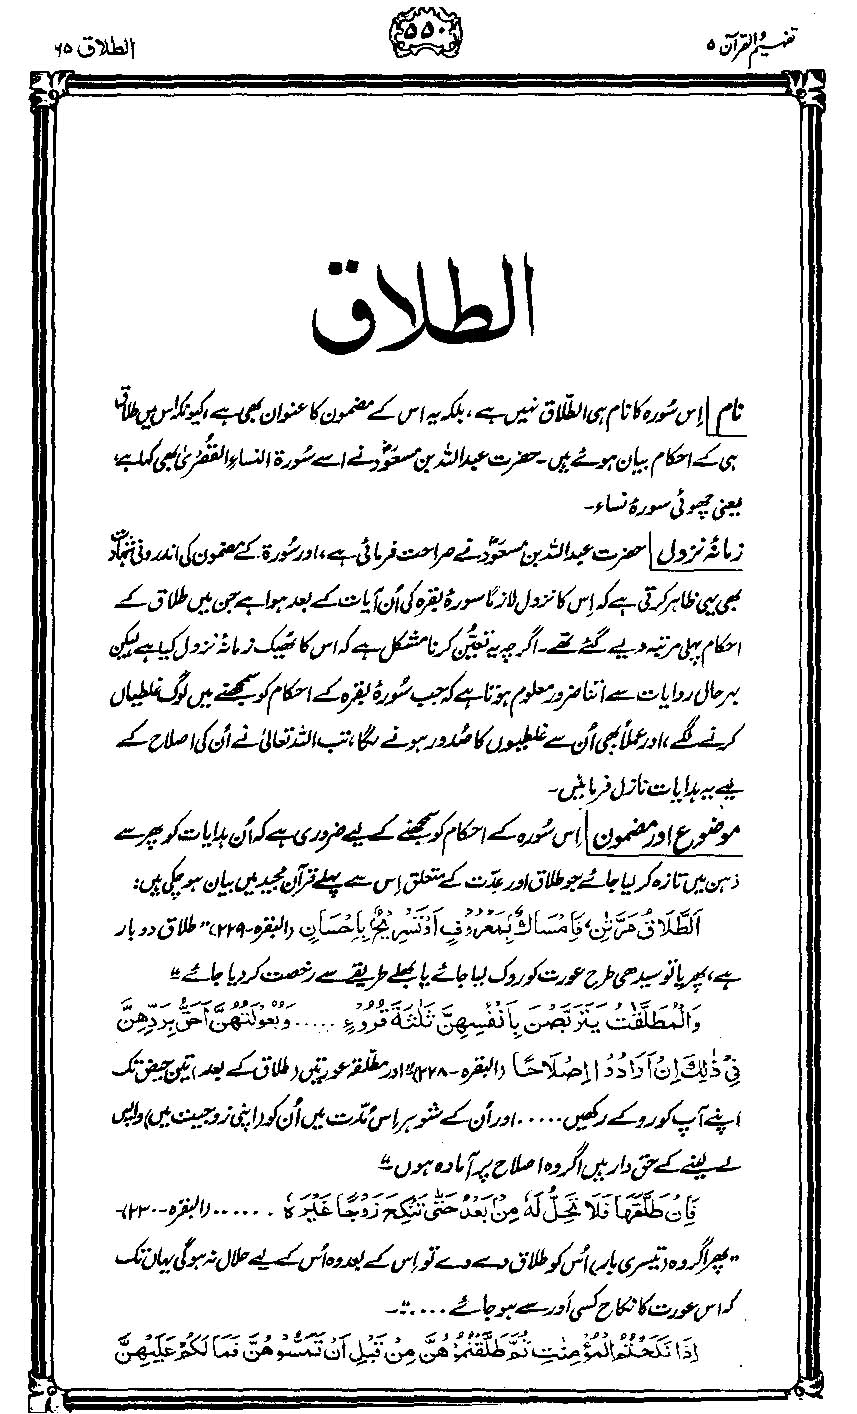 تفہیم القرآن ۵
۵۵۰
الطلاق ۶۵
الطلاق
نام اِس سُورہ کا نام ہی الطّلاق نہیں ہے، بلکہ یہ اس کے مضمون کا عنوان بھی ہے، کیونکہ اس میں طلاق
ہی کے احکام بیان ہوئے ہیں۔ حضرت عبداللہ بن مسعودؓ نے اسے سُورۃ النساء القُصْریٰ بھی کہا ہے،
یعنی چھوٹی سورۂ نساء۔
زمانۂ نزول حضرت عبداللہ بن مسعودؓ نے صراحت فرمائی ہے، اور سُورۃ کے مضمون کی اندرونی شہادت
بھی یہی ظاہر کرتی ہے کہ اِس کا نزول لازمًا سورۂ بقرہ کی اُن آیات کے بعد ہوا ہے جن میں طلاق کے
احکام پہلی مرتبہ دیے گئے تھے۔ اگرچہ یہ تعیّن کرنا مشکل ہے کہ اس کا ٹھیک زمانۂ نزول کیا ہے، لیکن
بہرحال روایات سے اتنا ضرور معلوم ہوتا ہے کہ جب سُورۂ بقرہ کے احکام کو سمجھنے میں لوگ غلطیاں
کرنے لگے، اور عملًا بھی اُن سے غلطیوں کا صُدور ہونے لگا، تب اللہ تعالیٰ نے اُن کی اصلاح کے
لیے یہ ہدایات نازل فرمائیں۔
موضوع اور مضمون اِس سُورہ کے احکام کو سمجھنے کے لیے ضروری ہے کہ اُن ہدایات کو پھر سے
ذہن میں تازہ کر لیا جائے جو طلاق اور عدّت کے متعلق اِس سے پہلے قرآن مجید میں بیان ہو چکی ہیں:
اَلطَّلَاقُ مَرَّتٰنِ، فَاِمْسَاكٌ بِمَعْرُوْفٍ اَوْ تَسْرِيْحٌ بِاِحْسَانٍ (البقرہ-۲۲۹) ”طلاق دو بار
ہے، پھر یا تو سیدھی طرح عورت کو روک لیا جائے یا بھلے طریقے سے رخصت کر دیا جائے“
وَالْمُطَلَّقٰتُ يَتَرَبَّصْنَ بِاَنْفُسِهِنَّ ثَلٰثَةَ قُرُوْءٍ ..... وَبُعُوْلَتُهُنَّ اَحَقُّ بِرَدِّهِنَّ
فِيْ ذٰلِكَ اِنْ اَرَادُوْا اِصْلَاحًا (البقرہ-۲۲۸) ”اور مطلّقہ عورتیں (طلاق کے بعد) تین حیض تک
اپنے آپ کو روکے رکھیں ..... اور اُن کے شوہر اِس مُدّت میں اُن کو (اپنی زوجیت میں) واپس
لے لینے کے حق دار ہیں اگر وہ اصلاح پر آمادہ ہوں“
فَاِنْ طَلَّقَهَا فَلَا تَحِلُّ لَهٗ مِنْۢ بَعْدُ حَتّٰى تَنْكِحَ زَوْجًا غَيْرَهٗ ...... (البقرہ-۲۳۰)۔
”پھر اگر وہ (تیسری بار) اُس کو طلاق دے دے تو اِس کے بعد وہ اُس کے لیے حلال نہ ہوگی یہاں تک
کہ اس عورت کا نکاح کسی اَور سے ہو جائے ....“۔
اِذَا نَكَحْتُمُ الْمُؤْمِنٰتِ ثُمَّ طَلَّقْتُمُوْهُنَّ مِنْ قَبْلِ اَنْ تَمَسُّوْهُنَّ فَمَا لَكُمْ عَلَيْهِنَّ